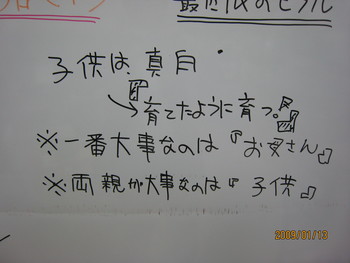 子供は、真白
→育てたように育つ。
※一番大事なのは『お母さん』
※両親が大事なのは『子供』
2009/01/13